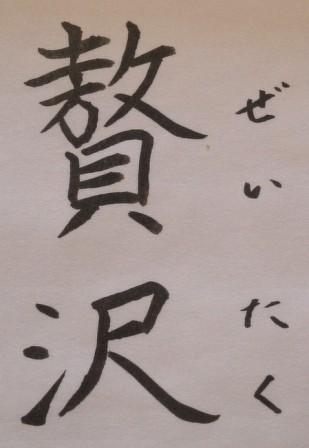 贅沢
ぜいたく